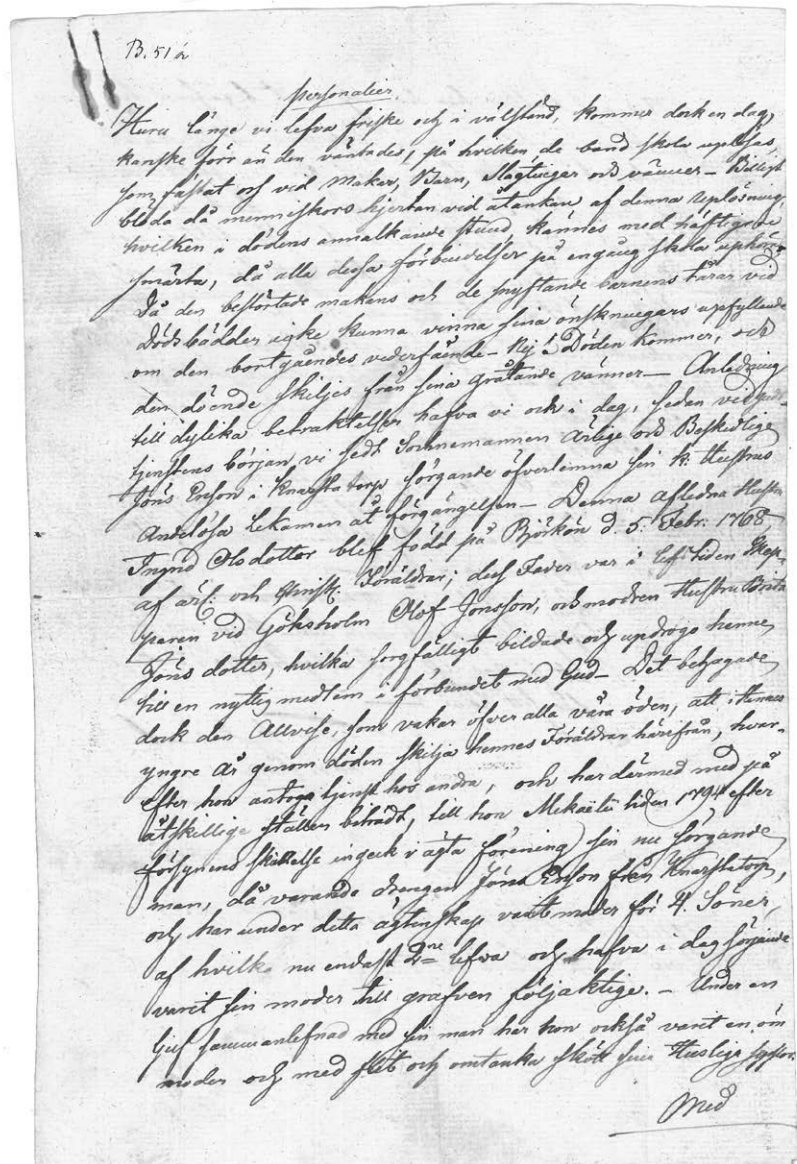 B. 51 a
Personalier.
Huru länge vi lefva friske och i välstånd, kommer dock en dag,
kanske förr än den väntades, på hvilken de band skola uplösas,
som fästat oss vid Makar, Barn, Slagtingar och vänner – Billigt
blöda då menniskors hjertan vid åtankan af denna uplösning,
hvilken i dödens annalkande stund, kännes med häftigare
smärta, då alla dessa förbindelser på engång skola uphöra.
Då den bestörtade makens och de snyftande barnens tårar vid
dödsbädden icke kunna vinna sina önskningars upfyllande
om den bortgåendes vederfående – Nej! Döden kommer, och
den döende skiljes från sina gråtande vänner – Anledning
till dylika betraktelser hafva vi och i dag, sedan vid
tjenstens början, vi sedt Socknemannen Ärlige och Beskedlige
Jöns Ersson i Knapstatorp sörgande öfverlemna sin k. Hustrus
Andelösa Lekamen åt förgängelsen – Denna afledna Hustru
Ingrid Olsdotter blef född på Björkön d. 5. Febr. 1768
af ärl. och Christl. Föräldrar; dess Fader var i lifstiden Skep-
paren vid Göksholm Olof Jonsson, och modren Hustru Brita
Jöns dotter, hvilka sorgfälligt bildade och updrogo henne
till en nyttig medlem i förbundet med Gud – Det behagade
dock den Allvise, som vakar öfver alla våra öden, att i hennes
yngre år genom döden skilja hennes Föräldrar härifrån, hvar-
efter hon antoge tjenst hos andra, och har dermed med på
åtskillige ställen beträdt, till hon Mikaëli tiden 1794 efter
försynens skickelse ingeck i ägta förening sin nu sörgande
man, då varande drengen Jöns Ersson från Knapstatorp,
och har under detta ägtenskap varit moder för 4. Söner,
af hvilka nu endast 2ne lefva och hafva i dag sörjande
varit sin moder till grafven följaktlige. – Under en
ljuf sammanlefnad med sin man har hon också varit en öm
moder och med flit och omtanka skött sina Huslige
Med